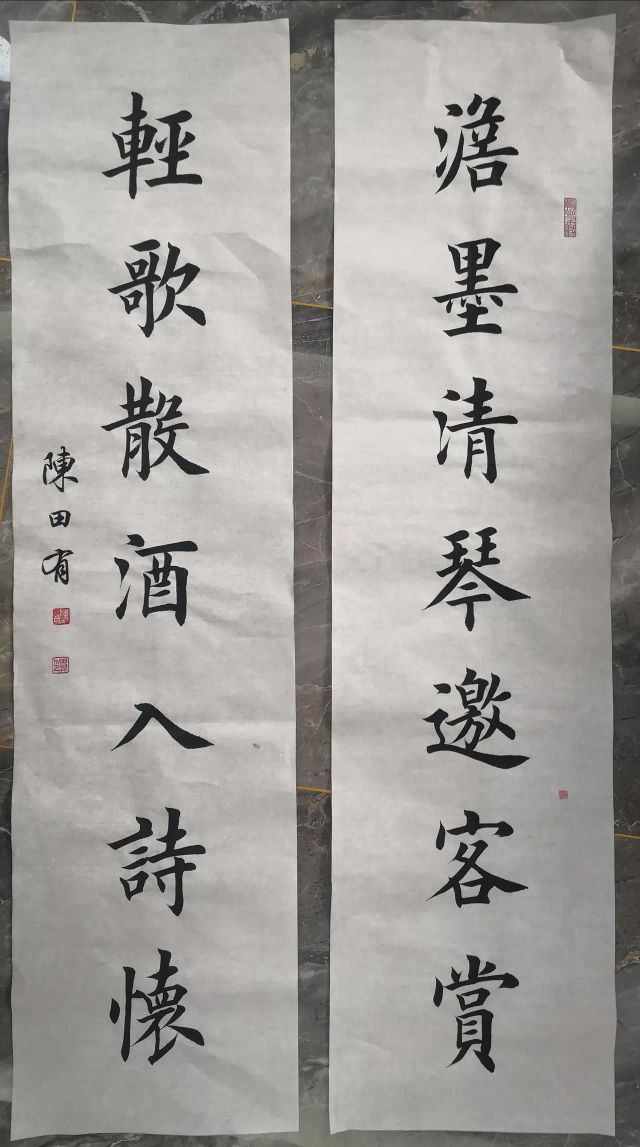 澹墨清琴邀客賞
輕歌散酒入詩懷
陳田有